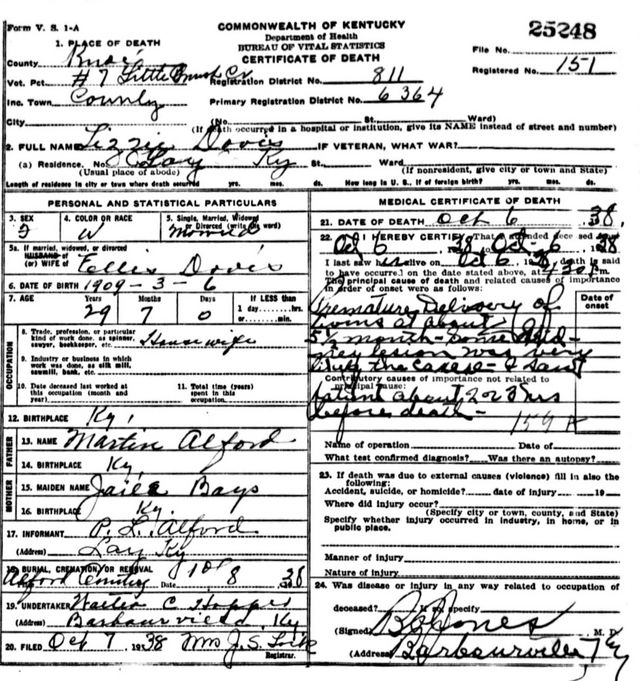 Form V. S. 1-A
COMMONWEALTH OF KENTUCKY
Department of Health
BUREAU OF VITAL STATISTICS
CERTIFICATE OF DEATH
25248
File No.
Registered No. 151
1. PLACE OF DEATH
County Knox
Vot. Pct. #7 Little Brush Cr
Inc. Town County
City
Registration District No. 811
Primary Registration District No. 6364
(No. St. Ward)
(If death occurred in a hospital or institution, give its NAME instead of street and number)
2. FULL NAME Lizzie Davis IF VETERAN, WHAT WAR?
(a) Residence. No. Lay Ky St. Ward
(Usual place of abode) (If nonresident, give city or town and State)
Length of residence in city or town where death occurred yrs. mos. ds. How long in U. S., if of foreign birth? yrs. mos. ds.
PERSONAL AND STATISTICAL PARTICULARS
3. SEX
F
4. COLOR OR RACE
W
5. Single, Married, Widowed or Divorced (write the word)
Married
5a. If married, widowed, or divorced
HUSBAND of
(or) WIFE of Fellis Davis
6. DATE OF BIRTH 1909-3-6
7. AGE Years Months Days If LESS than
29 7 0 1 day hrs.
or min.
OCCUPATION
8. Trade, profession, or particular kind of work done, as spinner, sawyer, bookkeeper, etc. Housewife
9. Industry or business in which work was done, as silk mill, sawmill, bank, etc.
10. Date deceased last worked at this occupation (month and year)
11. Total time (years) spent in this occupation.
12. BIRTHPLACE Ky.
FATHER
13. NAME Martin Alford
14. BIRTHPLACE Ky.
MOTHER
15. MAIDEN NAME Bays
16. BIRTHPLACE Ky.
17. INFORMANT P. L. Alford
(Address) Lay Ky
18. BURIAL, CREMATION OR REMOVAL
Alford Date 10 8 38
19. UNDERTAKER C Hopper
(Address) Barbourville, Ky
20. FILED Oct 7 1938 Mrs J. S.
Registrar.
MEDICAL CERTIFICATE OF DEATH
21. DATE OF DEATH Oct 6 38,
22. I HEREBY CERTIFY, That I attended deceased
Oct 6 38 Oct 6 1938
I last saw alive on Oct 6 1938, death is said
to have occurred on the date stated above, at 4:30 P.m.
The principal cause of death and related causes of importance
in order of onset were as follows:
Date of onset
Premature Delivery of
twins at about
5½ month - some Kid-
ney lesion was very
likely the cause - I saw
Contributory causes of importance not related to
principal cause:
patient about 2 or 3 hrs
before death -
159 A
Name of operation Date of
What test confirmed diagnosis? Was there an autopsy?
23. If death was due to external causes (violence) fill in also the following:
Accident, suicide, or homicide? date of injury 19
Where did injury occur?
(Specify city or town, county, and State)
Specify whether injury occurred in industry, in home, or in public place.
Manner of injury
Nature of injury
24. Was disease or injury in any way related to occupation of
deceased? If so specify
(Signed) Jones M. D.
(Address) Barbourville, Ky